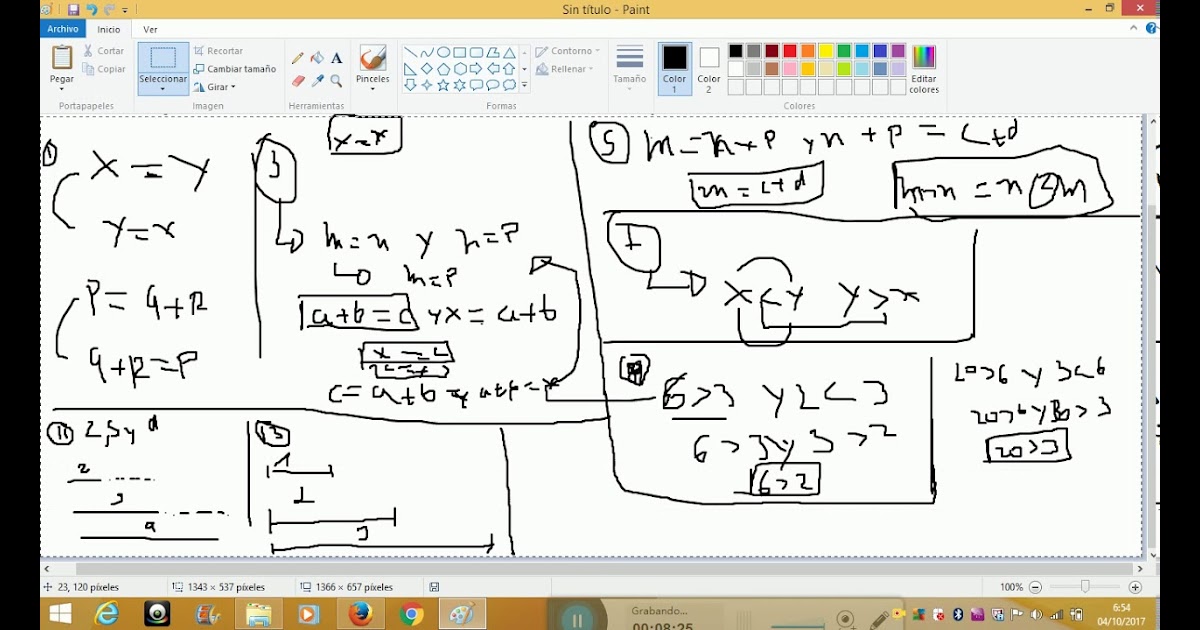 Sin título - Paint
Archivo Inicio Ver
Pegar
Cortar
Copiar
Portapapeles
Seleccionar
Recortar
Cambiar tamaño
Girar
Imagen
A
Herramientas
Pinceles
Contorno
Rellenar
Formas
Tamaño
Color 1
Color 2
Editar colores
Colores
1
X = Y
Y = x
P = q + R
q + R = P
3
x = x
m = n y n = P
m = P
a + b = c y x = a + b
x = c
c = a + b
5
m = n + P y n + P = c + d
m = c + d
7
X < Y Y > x
6 > 3 y 2 < 3
6 > 3 y 3 > 2
6 > 2
20 > 6 y 3 < 6
20 > 6 y 6 > 3
20 > 3
11 2, 3 y 4
2
3
13
1
2
3
23, 120 píxeles
1343 × 537 píxeles
1366 × 657 píxeles
100%
Grabando...
00:08:25
6:54
04/10/2017